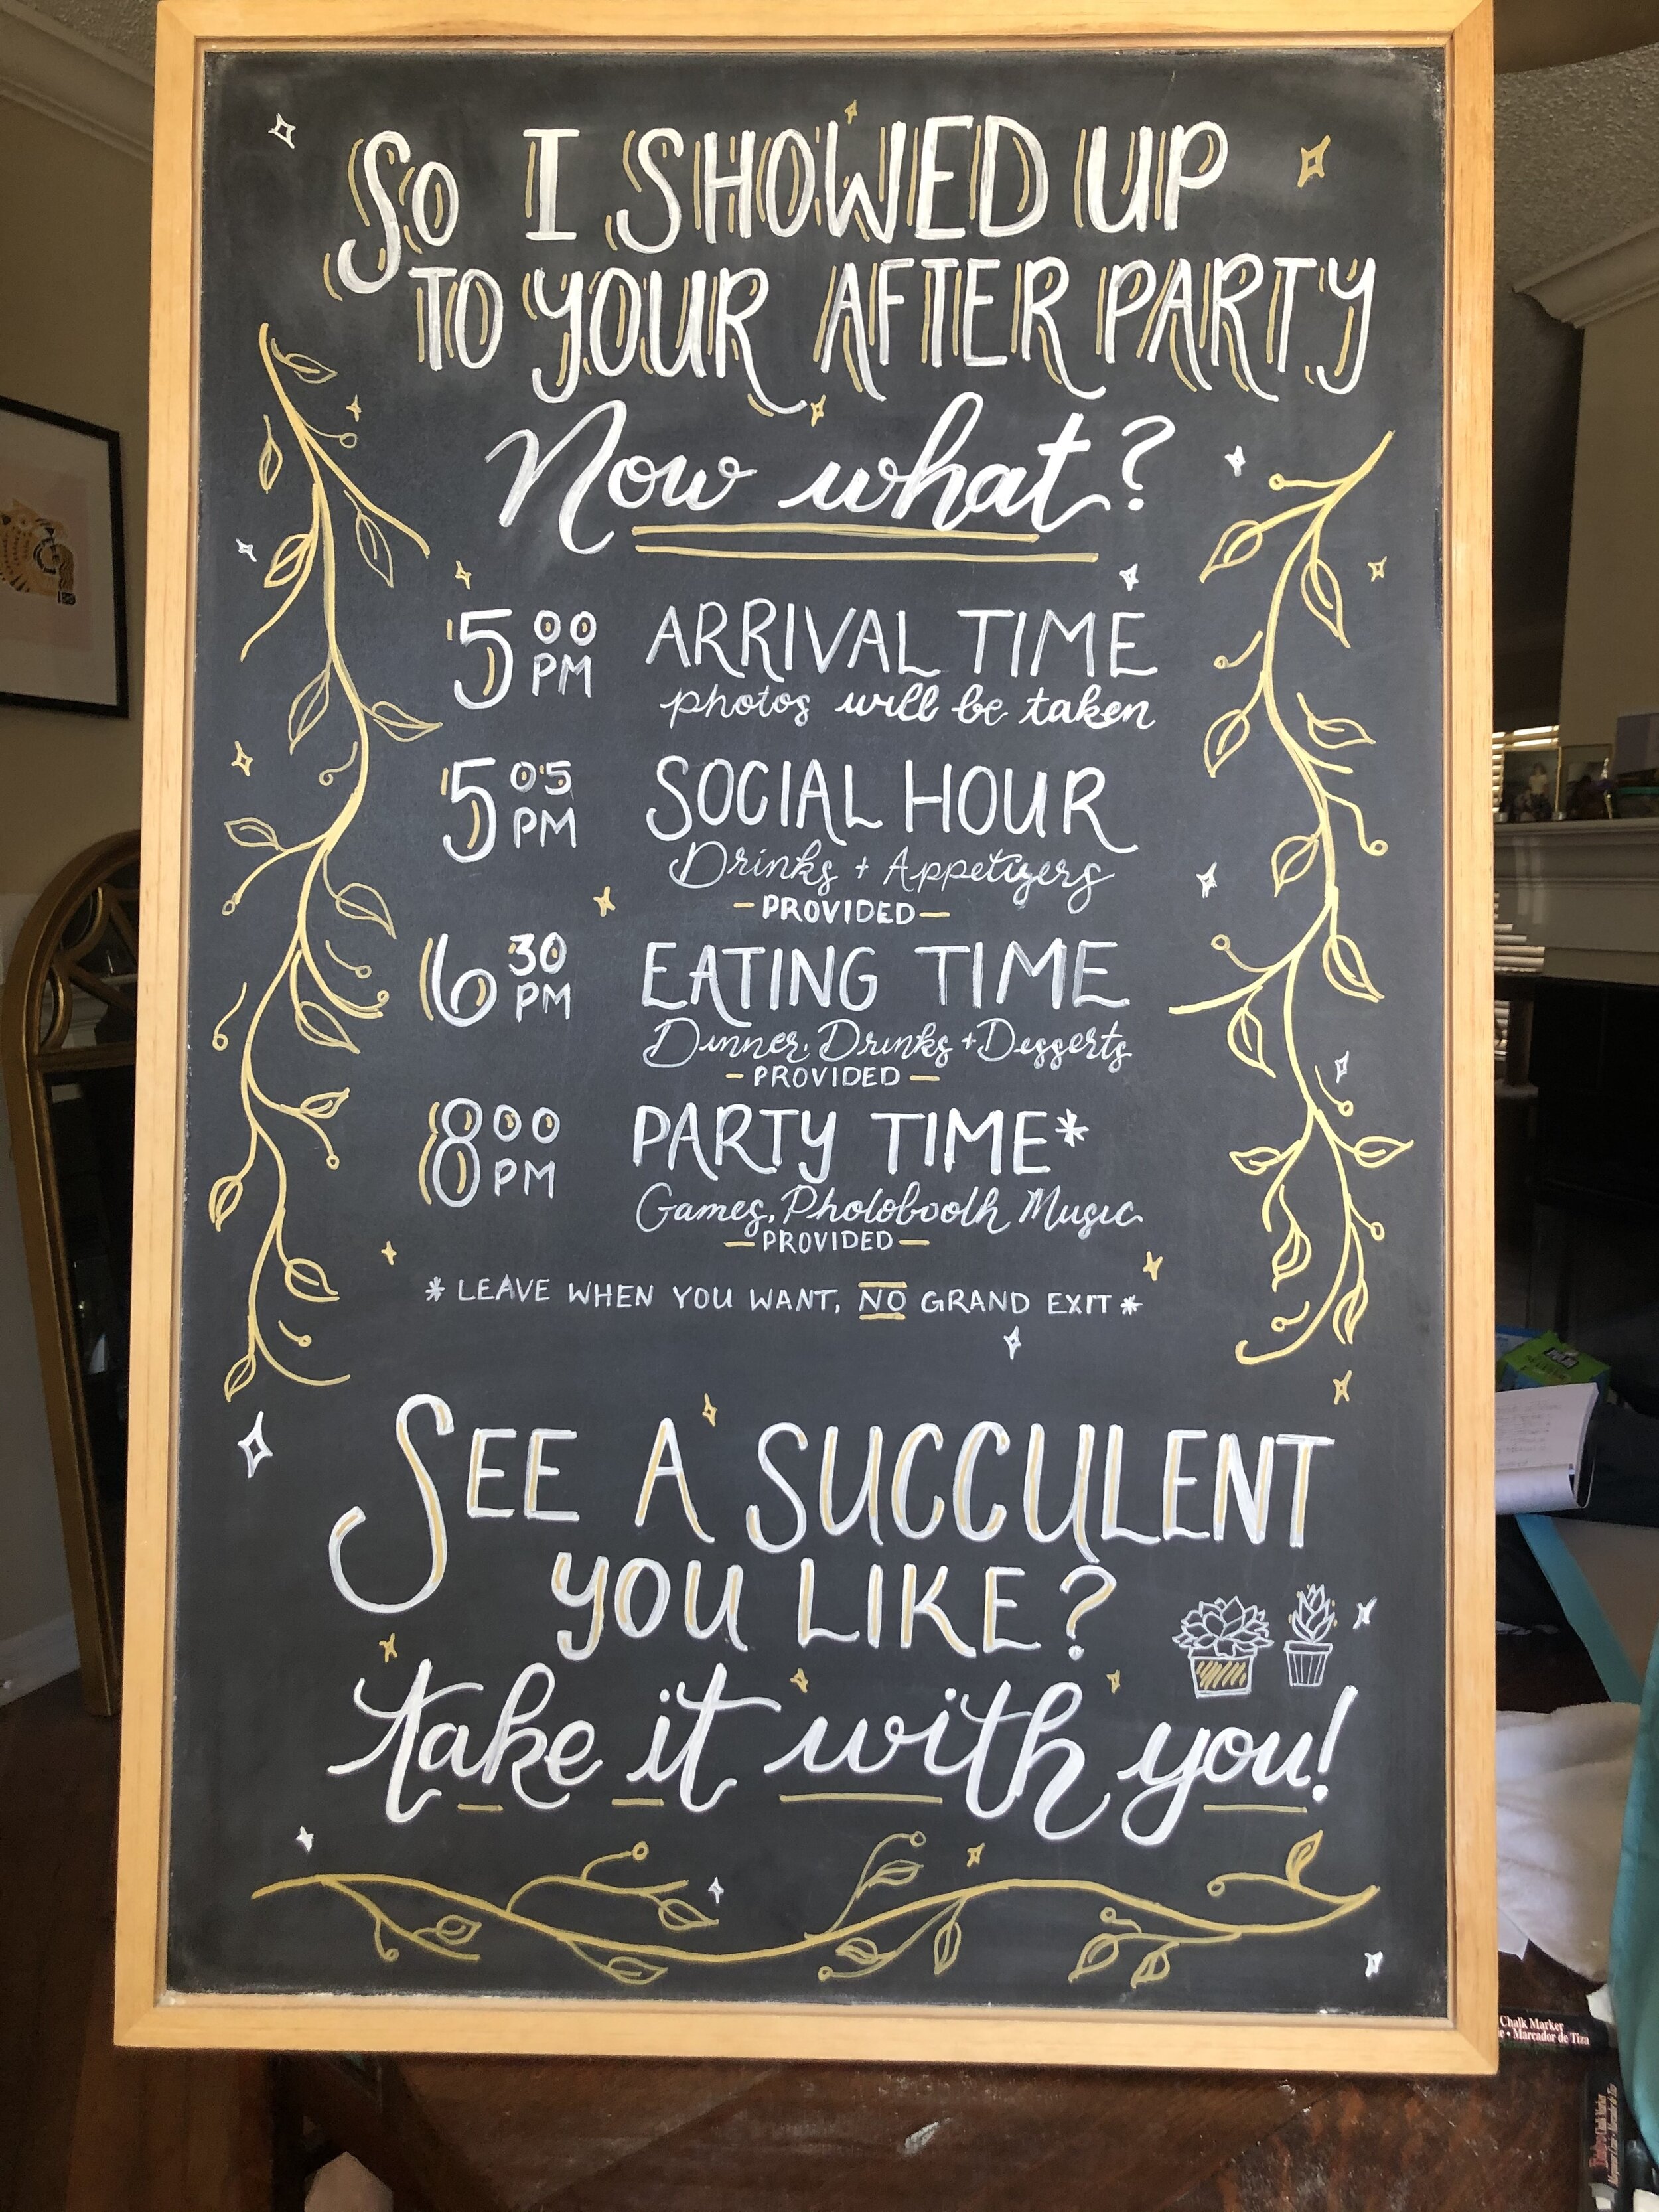 So I SHOWED UP
TO YOUR AFTER PARTY
Now what?
5 00 PM ARRIVAL TIME
photos will be taken
5 05 PM SOCIAL HOUR
Drinks + Appetizers
-PROVIDED-
6 30 PM EATING TIME
Dinner, Drinks + Desserts
-PROVIDED-
8 00 PM PARTY TIME*
Games, Photobooth Music
-PROVIDED-
* LEAVE WHEN YOU WANT, NO GRAND EXIT *
SEE A SUCCULENT
YOU LIKE?
take it with you!
Chalk Marker
Marcador de Tiza